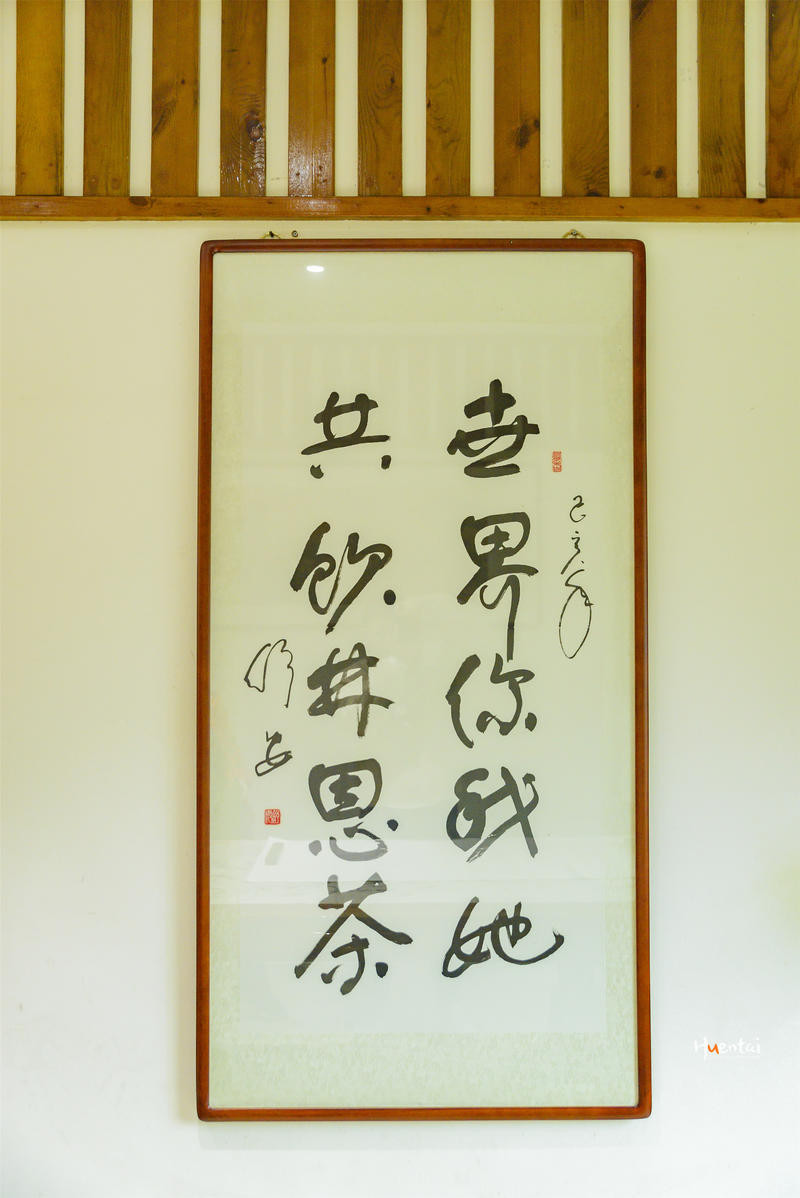 己亥年
世界你我她
共飲井恩茶
Huentai